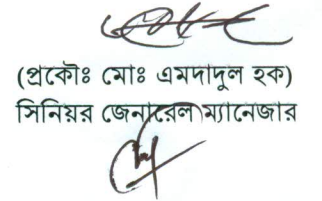 (প্রকৌঃ মোঃ এমদাদুল হক)
সিনিয়র জেনারেল ম্যানেজার